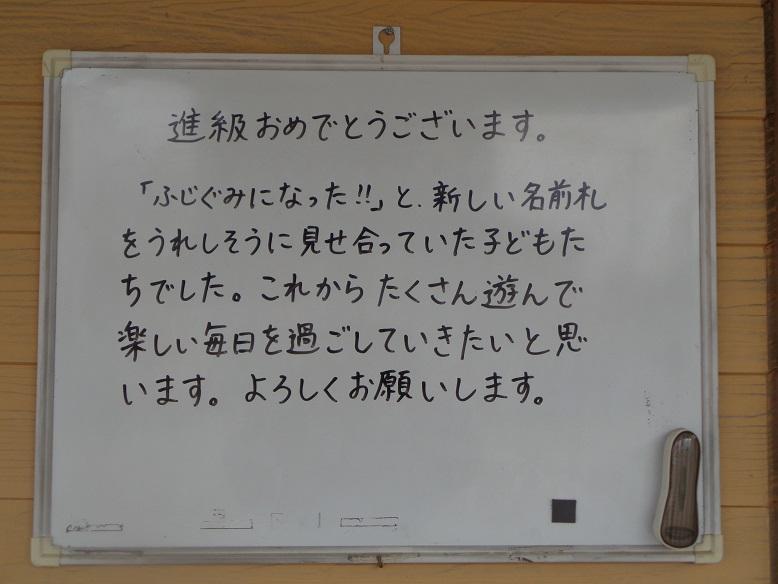 進級おめでとうございます。
「ふじぐみになった!!」と、新しい名前札
をうれしそうに見せ合っていた子どもた
ちでした。これからたくさん遊んで
楽しい毎日を過ごしていきたいと思
います。よろしくお願いします。